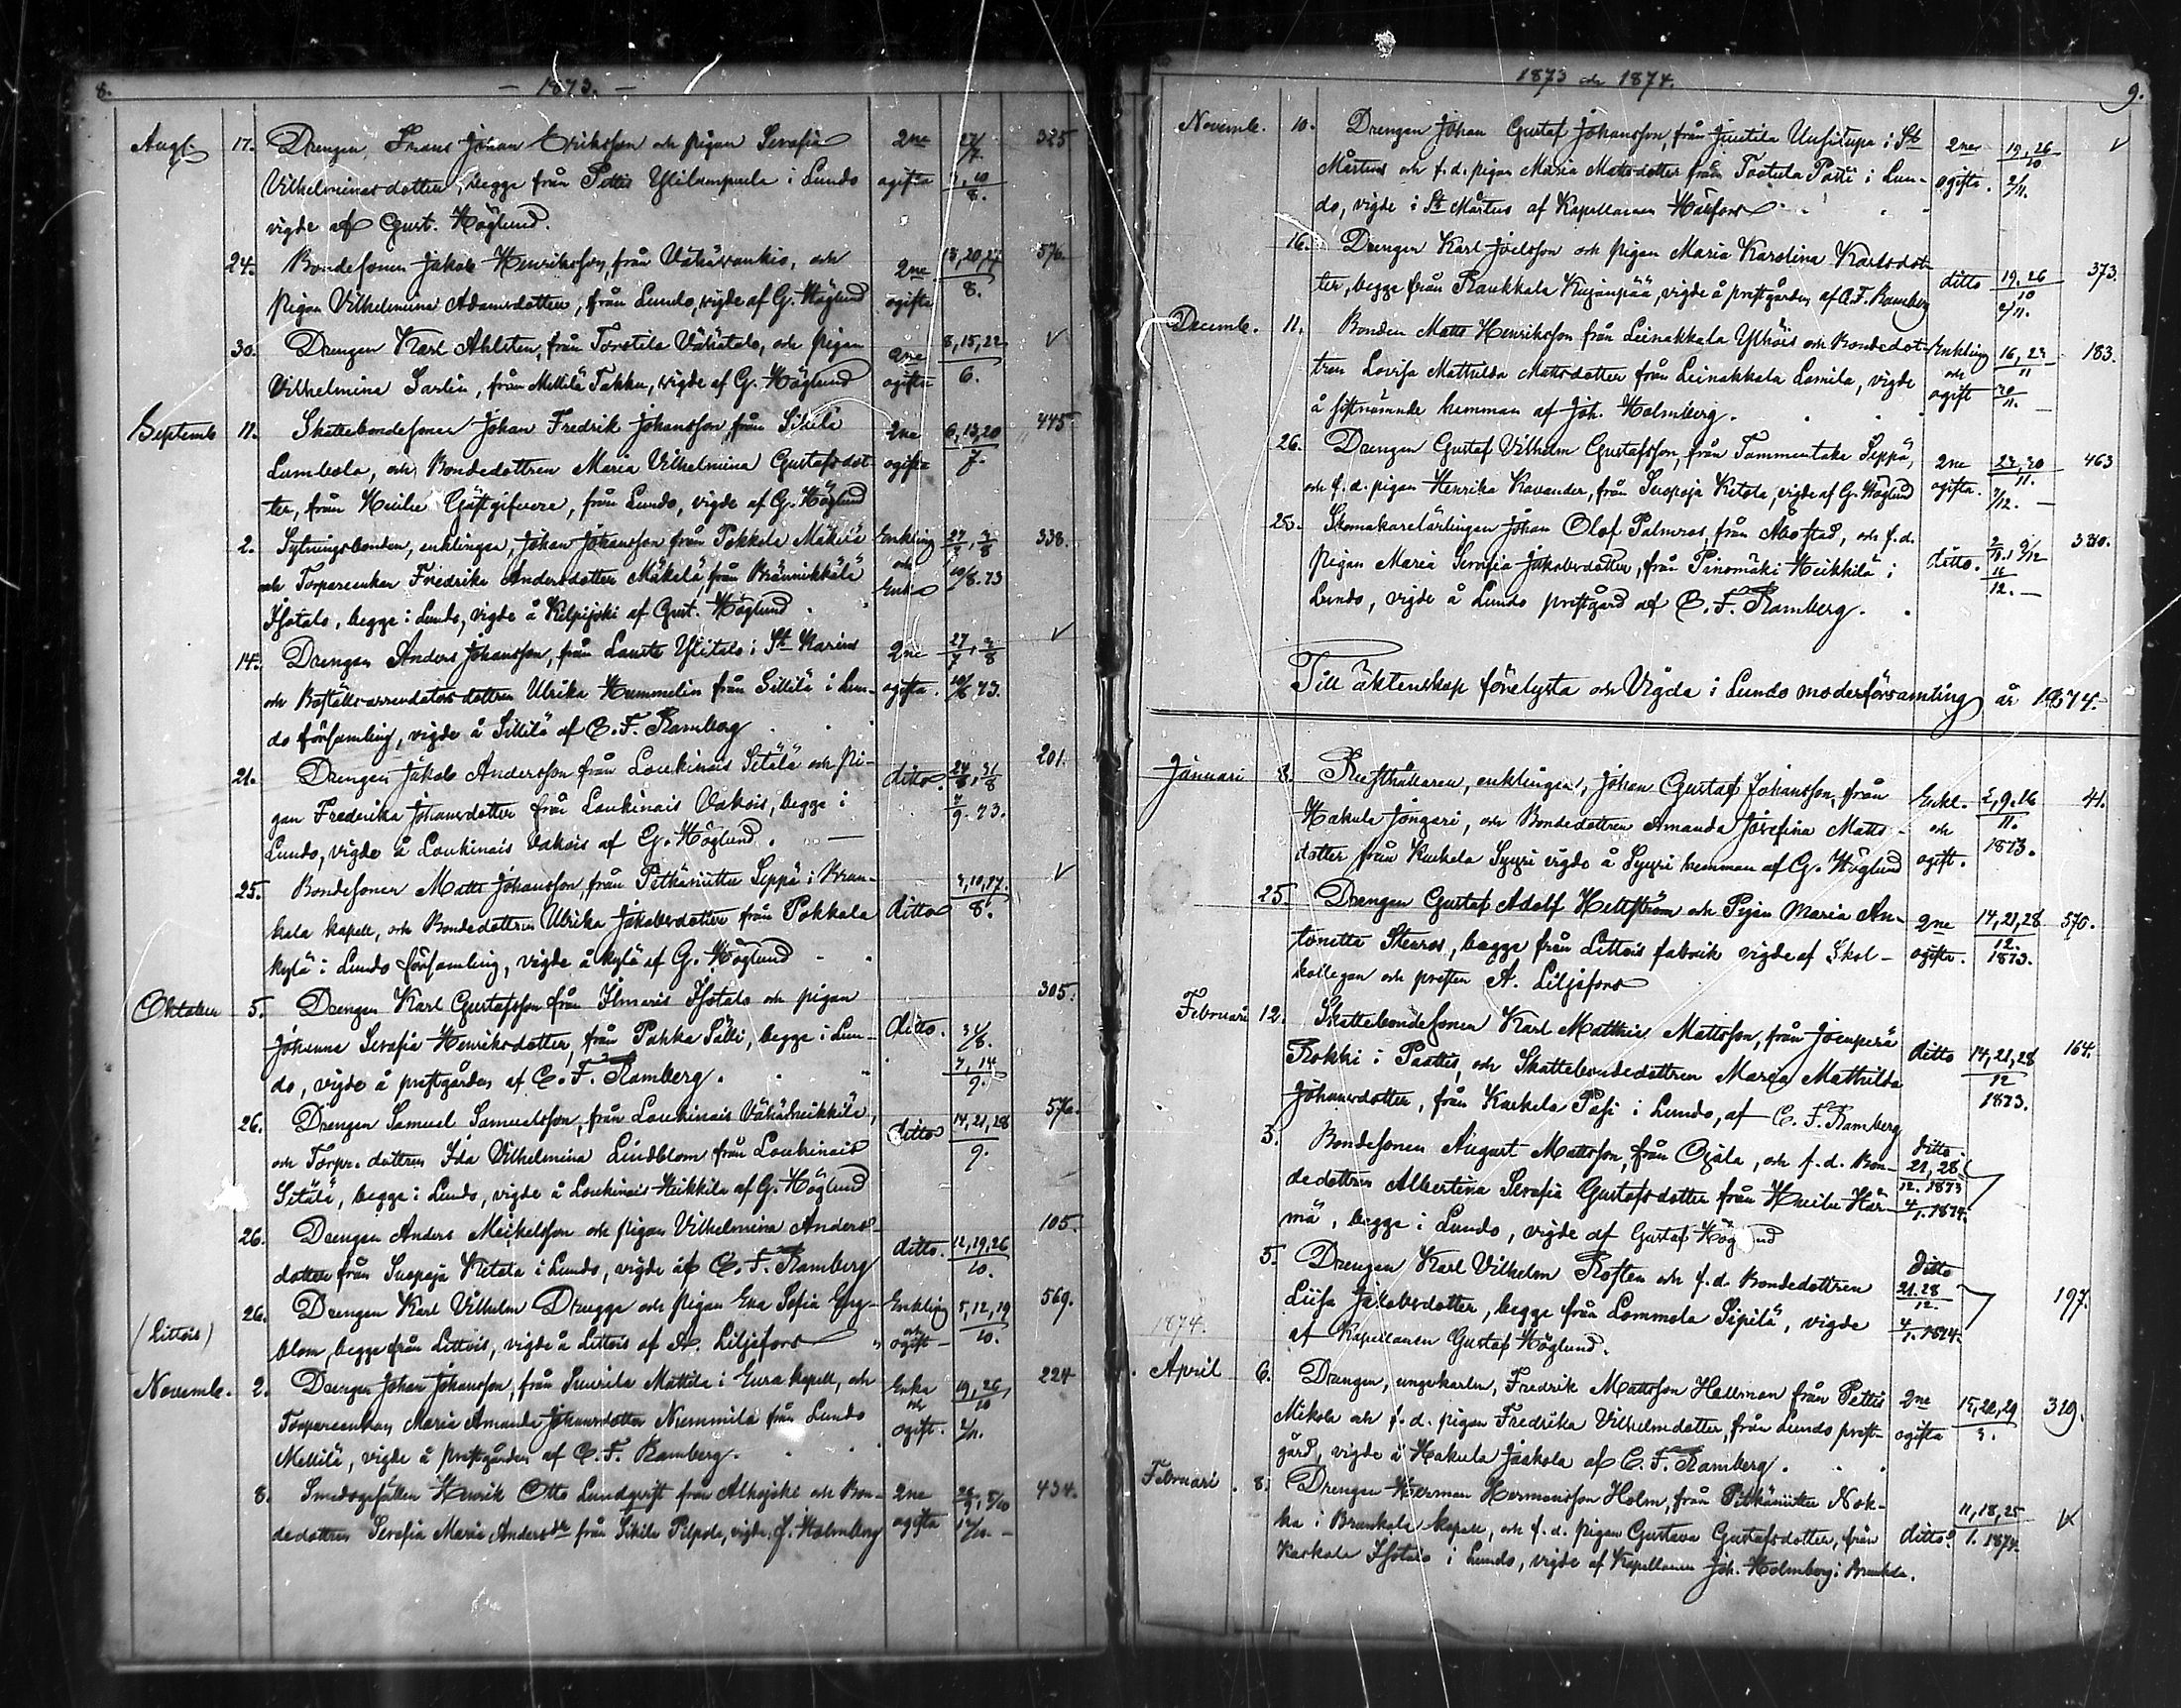 8.
— 1873. —
Augt. 17. Drengen Frans Johan Eriksson och pigan Serafia 2ne 27/7. 325
Vilhelminasdotter, begge från Pettis Ylilampuola i Lundo ogifta 3,10/8.
vigde af Gust. Höglund.
24. Bondesonen Jakob Henriksson, från Vähävankio, och 2ne 13,20,27/8. 576.
pigan Vilhelmina Adamsdotter, från Lundo, vigde af G. Höglund ogifta
30. Drengen Karl Ahlsten, från Torstila Vähätalo, och pigan 2ne 8,15,22/6. V
Vilhelmina Sarlin, från Mellilä Takku, vigde af G. Höglund ogifta
Septemb 11. Skattebondesonen Johan Fredrik Johansson, från Sikilä 2ne 6,13,20/7. 445
Lumbola, och Bondedottren Maria Vilhelmina Gustafsdot- ogifta
ter, från Gästgifvere, från Lundo, vigde af G. Höglund
2. Sytningsbonden, enklingen, Johan Johansson från Pokkola Mäkilä Enkling 27/7, 3/8 338.
och Torpareenkan Fredrika Andersdotter Mäkelä från och 10/8.73
Isotalo, begge i Lundo, vigde å Kilpijoki af Gust. Höglund. Enka
14. Drengen Anders Johansson, från Lauste Ylitalo i St Mariens 2ne 27/7, 3/8 V
och Boställsarrendators dottren Ulrika Hummelin från Sillilä i Lun- ogifta. 10/8 73.
do församling, vigde å Sillilä af C. F. Ramberg
21. Drengen Jakob Andersson från Loukinais Sitälä och pi- ditto. 24/8, 31/8 201.
gan Fredrika Johansdotter från Loukinais Vakois, begge i 7/9. 73.
Lundo, vigde å Loukinais Vakois af G. Höglund. —
25. Bondesonen Matts Johansson, från Pitkäniittu Seppä i Brun- 3,10,17./8. V
kala kapell, och Bondedottren Ulrika Jakobsdotter från Pokkola ditto
kylä i Lundo församling, vigde å kylä af G. Höglund
Oktober 5. Drengen Karl Gustafsson från Ilmaris Isotalo och pigan 305.
Johanna Serafia Henriksdotter, från Pahka Sälli, begge i Lun- ditto. 31/8.
do, vigde å prestgården af C. F. Ramberg. 7,14/9.
26. Drengen Samuel Samuelsson, från Loukinais Vähäheikkilä, ditto 14,21,28/9. 570.
och Torpr. dottren Ida Vilhelmina Lindblom från Loukinais
Sitälä, begge i Lundo, vigde å Loukinais Heikkilä af G. Höglund
26. Drengen Anders Meikelsson och pigan Vilhelmina Anders- ditto. 12,19,26/10. 105.
dotter från Suopoja Ketola i Lundo, vigde af C. F. Ramberg
(Littois) 26. Drengen Karl Vilhelm Drugge och pigan Eva Sofia Eng- Enkling 5,12,19/10. 569.
blom, begge från Littois, vigde å Littois af A. Liljefors och ogift
Novemb. 2. Drengen Johan Johansson, från Suurila Mattila i Eura kapell, och Enka 19,26/10 224
Torpareenkan Maria Amanda Johansdotter Niemmilä från Lundo och ogift. 2/11.
Mellilä, vigde å prestgården af C. F. Ramberg.
8. Smedsgesällen Henrik Otto Lundqvist från Alhojoki och Bon- 2ne 28/9, 5/10 434.
dedottren Serafia Maria Andersdr från Sikilä Pilpola, vigde J. Holmberg ogifta 12/10. —
1873 och 1874. 9.
Novemb. 10. Drengen Johan Gustaf Johansson, från Juutila Uusitupa i St 2ne 19,26/10 V
Mårtens och f.d. pigan Maria Mattsdotter från Taatula Pasti i Lun- ogifta. 2/11.
do, vigde i St Mårtens af Kapellanen Hällfors
16. Drengen Karl Joelsson och pigan Maria Karolina Karlsdot- ditto 19,26/10 373.
ter, begge från Raukkala Kujanpää, vigde å prestgården af C. F. Ramberg 2/11.
Decemb. 11. Bonden Matts Henriksson från Leinakkala Ylhöis och Bondedot- Enkling 16,23/11 183.
tren Lovisa Mathilda Mattsdotter från Leinakkala Lamila, vigde och ogift 30/11. —
å sistnämnde hemman af Joh. Holmberg.
26. Drengen Gustaf Vilhelm Gustafsson, från Tammentaka Seppä, 2ne 23,30/11. 463
och f.d. pigan Henrika Kavander, från Suopoja Ketola, vigde af G. Höglund ogifta. 7/12. —
28. Skomakarelärlingen Johan Olof Palmros, från Åbo stad, och f.d. 330.
pigan Maria Serafia Jakobsdotter, från Panomäki Heikkilä i ditto.
Lundo, vigde å Lundo prestgård af C. F. Ramberg.
Till äktenskap förelysta och Vigda i Lundo moderförsamling år 1874.
Januari 8. Rusthållaren, enklingen, Johan Gustaf Johansson, från Enkl. 2,9,16/11. 41.
Hakula Jongari, och Bondedottren Amanda Josefina Matts- och 1873.
dotter från Kurkela Syyri vigde å Syyri hemman af G. Höglund ogift.
25. Drengen Gustaf Adolf Hellström och Pigan Maria An- 2ne 14,21,28/12. 570.
tonetta Stenros, begge från Littois fabrik vigde af Skol- ogifta. 1873.
kollegan och presten A. Liljefors
Februari 12. Skattebondesonen Karl Matthis Mattsson, från Joenperä ditto 14,21,28/12 164.
Rokki i Paattis, och Skattebondedottren Maria Mathilda 1873.
Johansdotter, från Kurkela Pasi i Lundo, af C. F. Ramberg
3. Bondesonen August Mattsson, från Ojala, och f.d. Bon- ditto. 21,28/12. 1873
dedottren Albertina Serafia Gustafsdotter från Här- 4/1. 1874.
mä, begge i Lundo, vigde af Gustaf Höglund
5. Drengen Karl Vilhelm Rosten och f.d. Bondedottren ditto
Liisa Jakobsdotter, begge från Lommola Sipilä, vigde 21.28/12. 197.
1874. af Kapellanen Gustaf Höglund. 4/1. 1874.
April 6. Drengen, ungekarln, Fredrik Mattsson Hallman från Pettis 2ne 15,22,29/3. 319.
Mikola och f.d. pigan Fredrika Vilhelmsdotter, från Lundo prest- ogifta
gård, vigde å Hakula Jaskola af C. F. Ramberg.
Februari 8. Drengen Herman Hermansson Holm, från Pitkäniittu Nok- 11,18,25/1. 1874. V
ka i Brunkala kapell, och f.d. pigan Gustava Gustafsdotter, från ditto
Karkola Isotalo i Lundo, vigde af Kapellanen Joh. Holmberg i Brunkala.